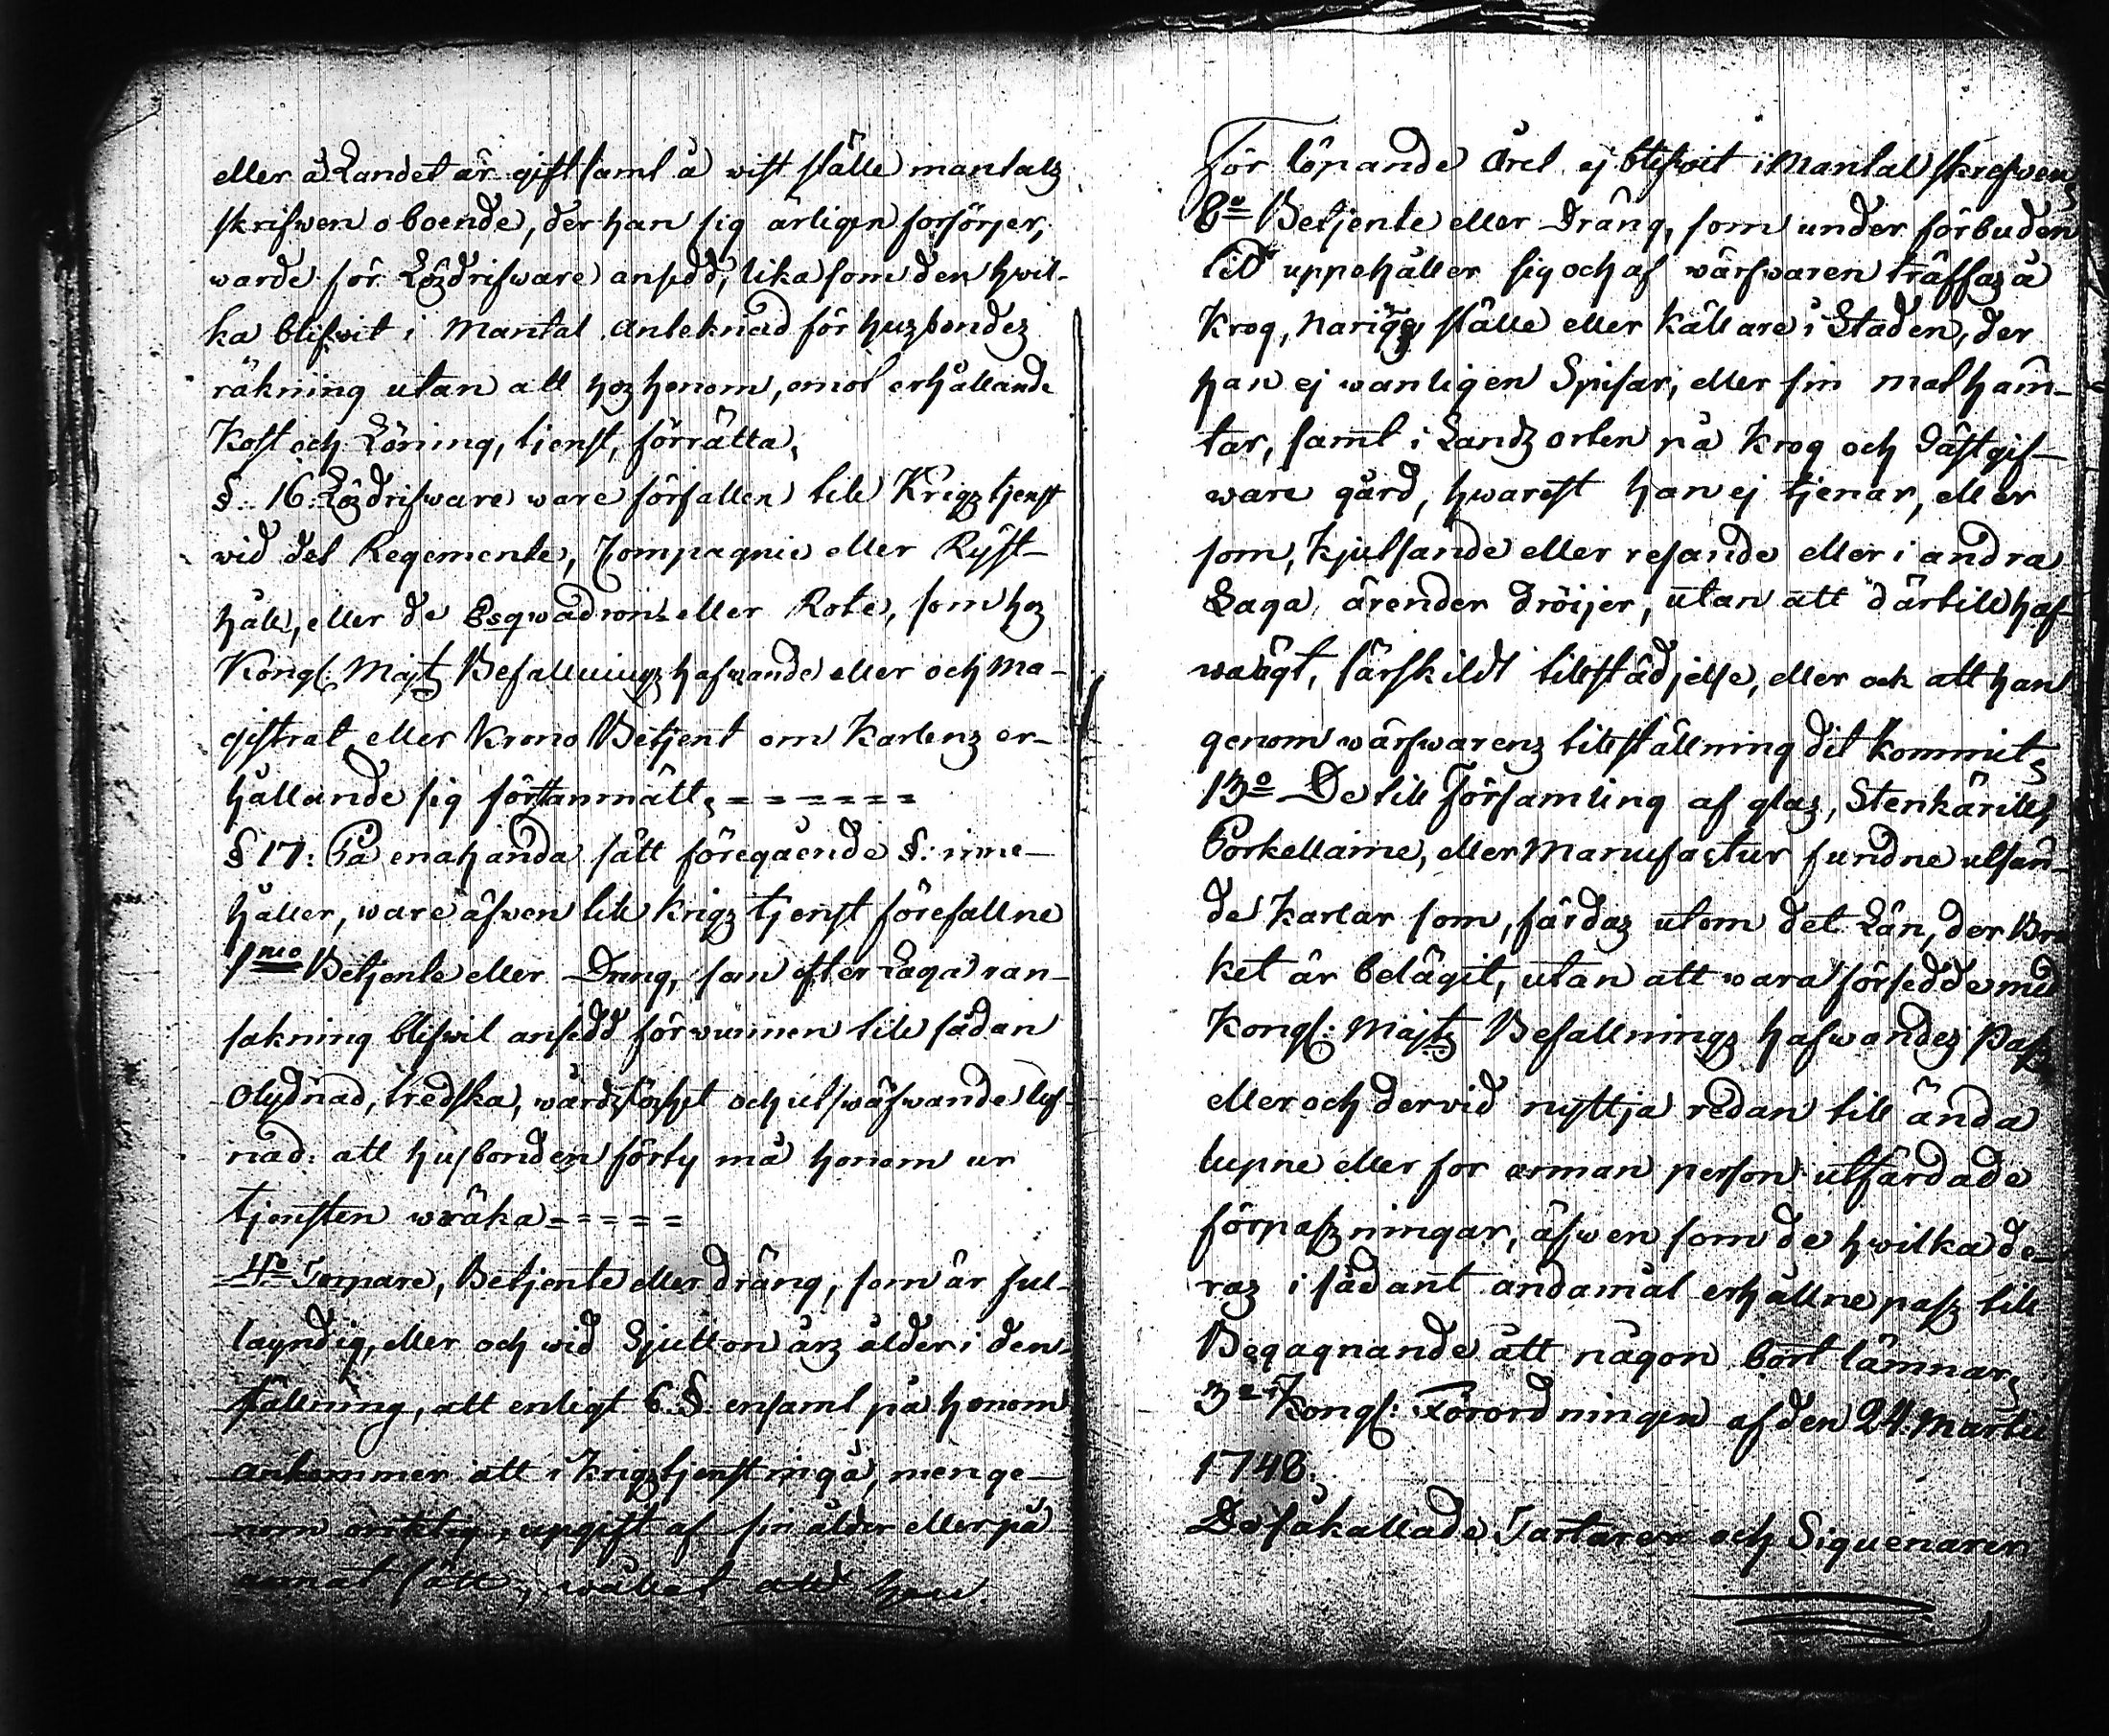 eller å Landet är gift samt å wist ställe mantalz
skrifwen o boende, der han sig ärligen försörjer,
warde för Lözdrifware ansedd, lika som den hwil-
ka blifwit i Mantal anteknad för huzbondez
räkning utan att hoz honom, emot erhållande
Kost och Löning, tjenst, förrätta,
§. 16. Lözdrifware ware förfallen till Krigz tjenst
wid det Regemente, Compagnie eller Ryst-
håll, eller de Esqwadron eller Rote, som hoz
Kongl: Majtz Befallningz hafwande eller och Ma-
gistrat eller Krono Betjent om Karlenz er-
hållande sig först anmält, = = = = = =
§ 17: På enahanda sätt föregående §: inne-
håller, ware äfwen till krigz tjenst förefallne
1mo Betjente eller Dräng, som efter Laga ran-
sakning blifwit ansedd förwunnen till sådan
olydnad, tredska, wårdzlözhet och utswäfwande lef-
nad: att husbonden förty må honom ur
tjensten wräka = = = = =
4o Torpare, Betjente eller dräng, som är ful-
layndig, eller och wid Sjutton årz ålder i den
ställning, att enligt 6. §. ensamt på honom
ankommer att i krigztjenst ingå, men ge-
nom oriktig, upgift af sin ålder eller på
annat sätt, wållat att han
För löpande Året ej blifwit i Mantal skrefwen,
8o Betjente eller Dräng, som under förbuden
tid uppehåller sig och af wärfwaren träffaz å
Krog, näringz ställe eller källare i Staden, der
han ej wanligen Spisar, eller sin mat häm-
tar, samt i Landz orten på Krog och Gästgif-
ware gård, hwarest han ej tjenar, eller
som, Kjutsande eller resande eller i andra
Laga ärender dröijer, utan att därtill haf-
wa ägt, särskildt tillstädjelse, eller och att han
genom wärfwarenz tillställning dit kommit,
13o De till Församling af glaz, Stenkärill,
Porkellaine, eller Manufactur fundne utsän-
de Karlar som, färdaz utom det Län, der Bru
ket är belägit, utan att wara försedde med
Kongl: Majtz Befallningz hafwandez Pasz
eller och dervid nyttja redan till ända
lupne eller for annan person utfärdade
förpaszningar, äfwen som de hwilka de-
raz i sådant ändamål erhållne pasz till
Begagnande ått någon bort lämnar,
3o Kongl: Förordningen af den 24. Martii
1748.
De såkallade Tartarer och Siguenarer